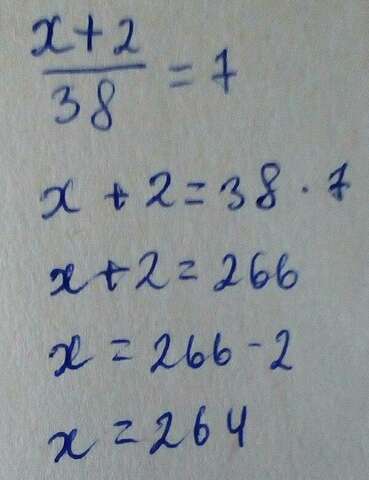 x+2
38 = 7
x + 2 = 38 · 7
x + 2 = 266
x = 266 - 2
x = 264